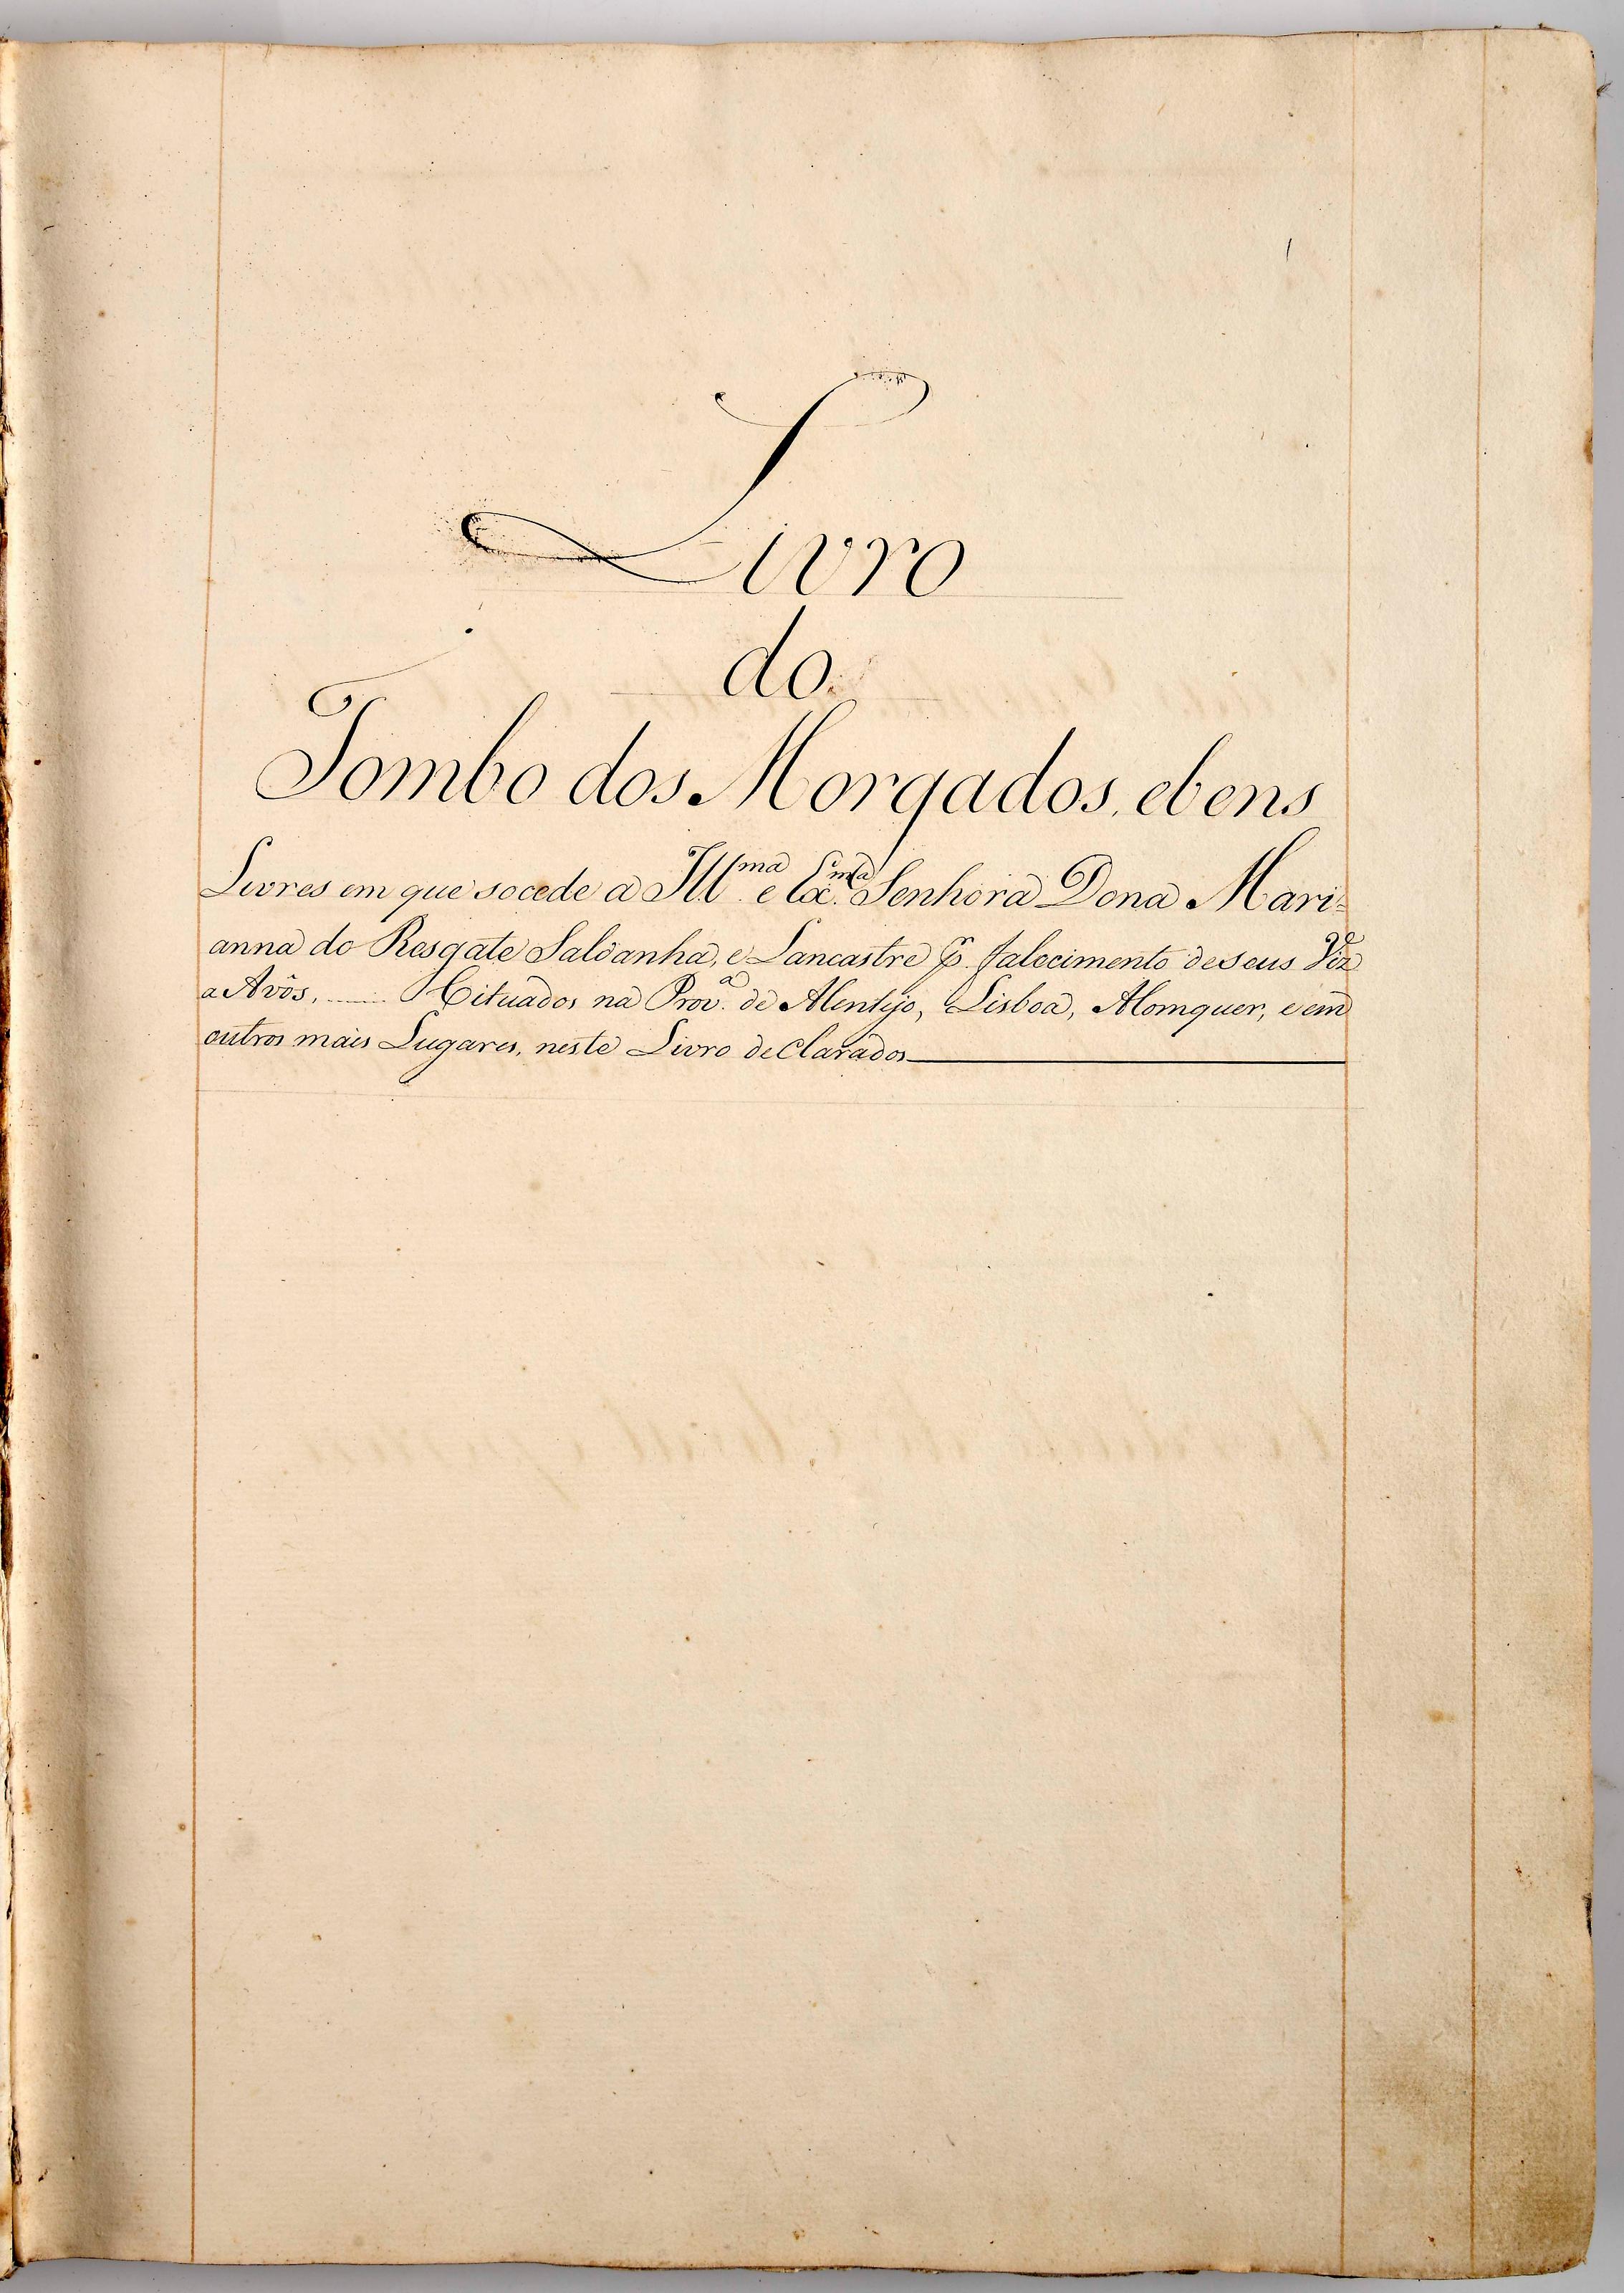 1
Livro
do
Tombo dos Morgados, e bens
Livres em que socede a Ill.ma e Ex.ma Senhora Dona Mari=
anna do Resgate Saldanha, e Lancastre p.r falecimento de seus Viz
a Avôs, Cituados na Prov.a de Alentejo, Lisboa, Alomquer, e em
outros mais Lugares, neste Livro declarados